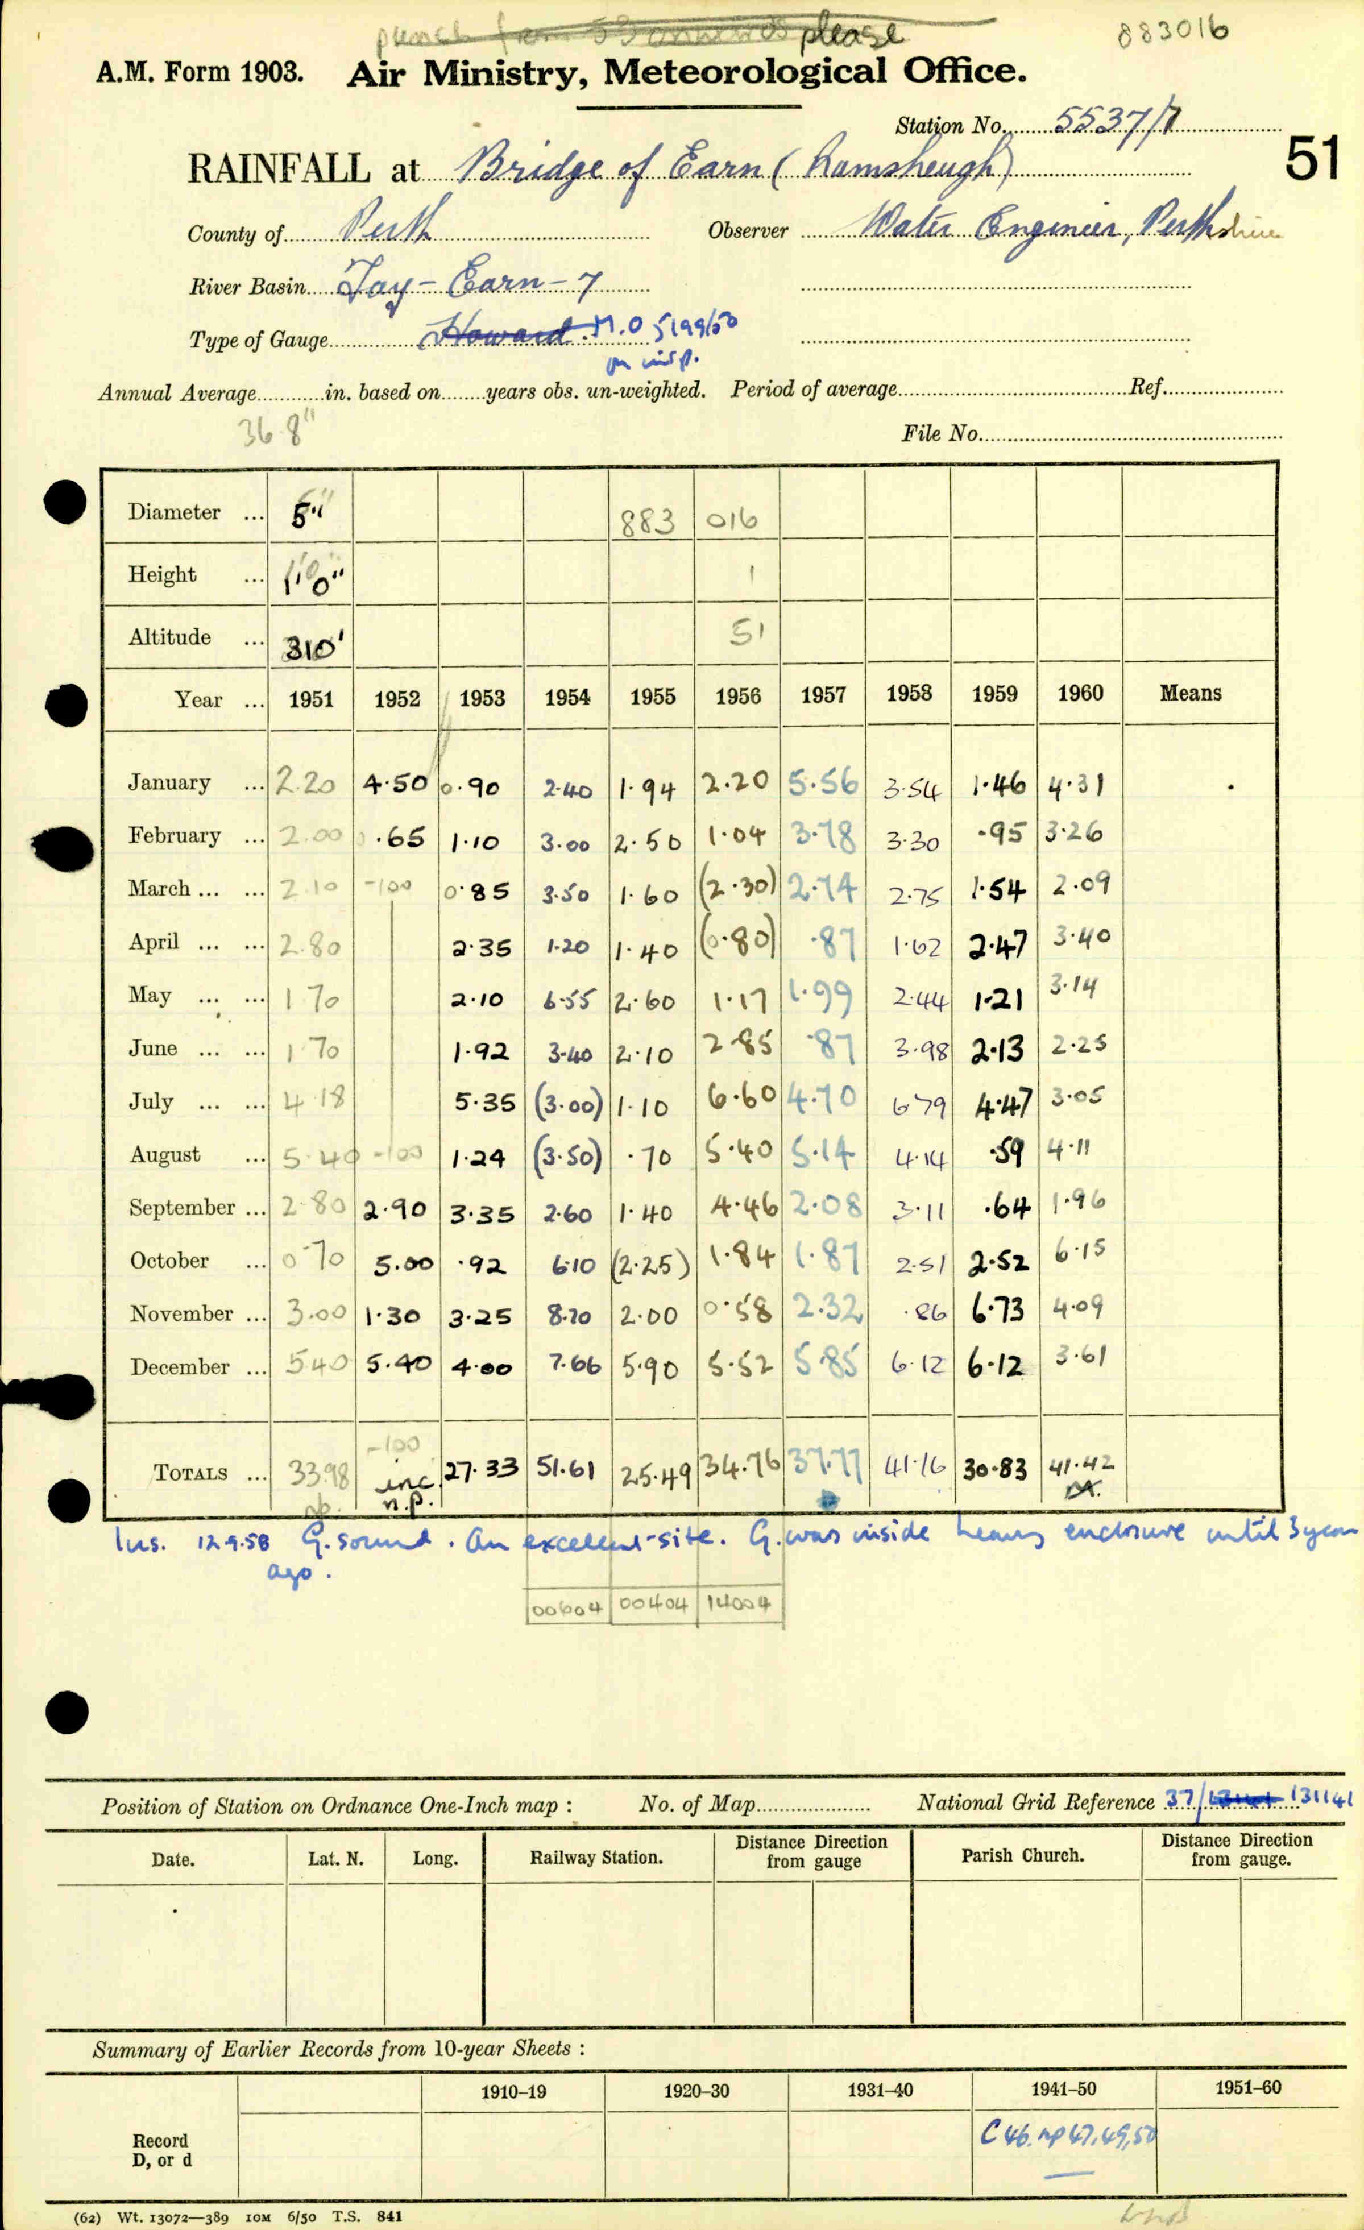 punch from 53 onwards please
883016
A.M. Form 1903. Air Ministry, Meteorological Office.
Station No. 5537/7
51
RAINFALL at Bridge of Earn (Lamsheugh)
County of Perth Observer Water Engineer, Perthshire
River Basin Tay - Earn - 7
Type of Gauge Howard. M.O 5199/50
on insp.
Annual Average in. based on years obs. un-weighted. Period of average Ref.
36.8"
File No.
Diameter ... 5" 883 016
Height ... 1'0" 1
Altitude ... 310' 51
Year ... 1951 1952 1953 1954 1955 1956 1957 1958 1959 1960 Means
January ... 2.20 4.50 0.90 2.40 1.94 2.20 5.56 3.54 1.46 4.31
February ... 2.00 .65 1.10 3.00 2.50 1.04 3.78 3.30 .95 3.26
March ... ... 2.10 -100 0.85 3.50 1.60 (2.30) 2.74 2.75 1.54 2.09
April ... ... 2.80 2.35 1.20 1.40 (0.80) .87 1.62 2.47 3.40
May ... ... 1.70 2.10 6.55 2.60 1.17 1.99 2.44 1.21 3.14
June ... ... 1.70 1.92 3.40 2.10 2.85 .87 3.98 2.13 2.25
July ... ... 4.18 5.35 (3.00) 1.10 6.60 4.70 6.79 4.47 3.05
August ... 5.40 -100 1.24 (3.50) .70 5.40 5.14 4.14 .59 4.11
September ... 2.80 2.90 3.35 2.60 1.40 4.46 2.08 3.11 .64 1.96
October ... 0.70 5.00 .92 6.10 (2.25) 1.84 1.87 2.51 2.52 6.15
November ... 3.00 1.30 3.25 8.70 2.00 0.58 2.32 .86 6.73 4.09
December ... 5.40 5.40 4.00 7.66 5.90 5.52 5.85 6.12 6.12 3.61
-100
TOTALS ... 33.98 inc. 27.33 51.61 25.49 34.76 37.77 41.16 30.83 41.42
n.p.
Ins. 12.9.58 G. sound. An excellent site. G. was inside heavy enclosure until 3 years
ago.
00604 00404 14004
Position of Station on Ordnance One-Inch map : No. of Map National Grid Reference 37/ 131141
Date. Lat. N. Long. Railway Station. Distance Direction from gauge Parish Church. Distance Direction from gauge.
Summary of Earlier Records from 10-year Sheets :
1910–19 1920–30 1931–40 1941–50 1951–60
Record D, or d C 46. np 47, 49, 50
(62) Wt. 13072—389 10M 6/50 T.S. 841